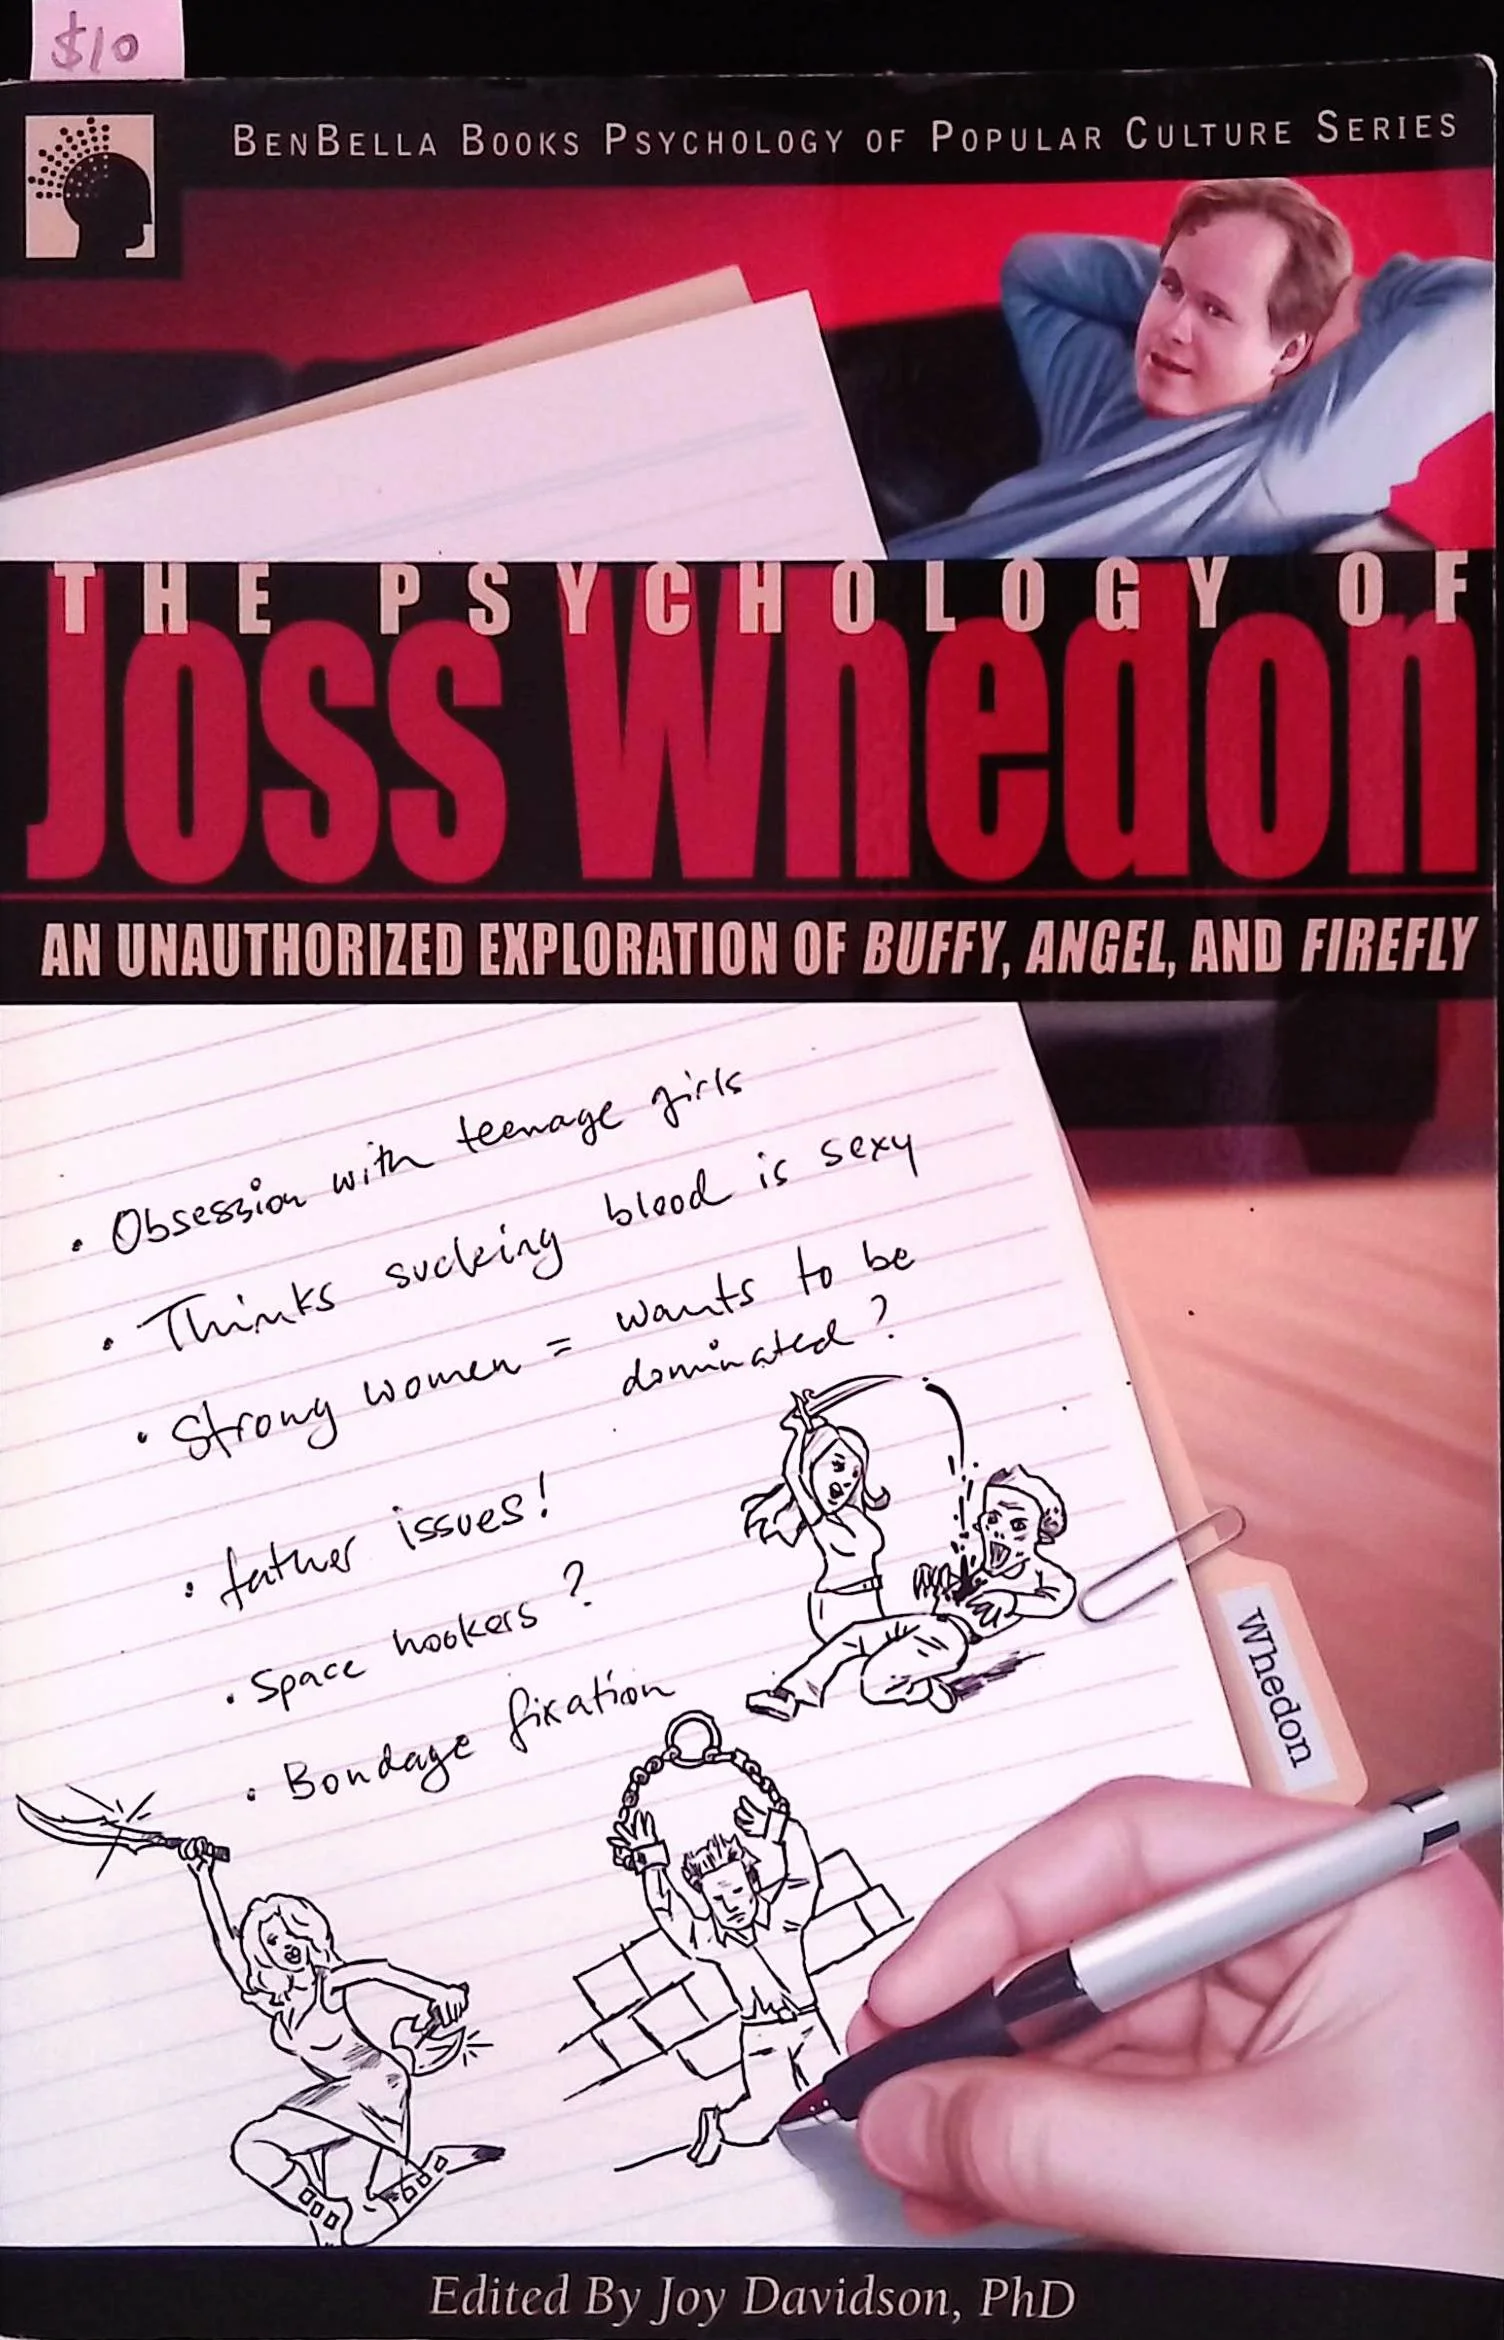 $10
BENBELLA BOOKS PSYCHOLOGY OF POPULAR CULTURE SERIES
THE PSYCHOLOGY OF
Joss Whedon
AN UNAUTHORIZED EXPLORATION OF BUFFY, ANGEL, AND FIREFLY
• Obsession with teenage girls
• Thinks sucking blood is sexy
• Strong women = wants to be
dominated?
• father issues!
• Space hookers?
• Bondage fixation
Whedon
Edited By Joy Davidson, PhD